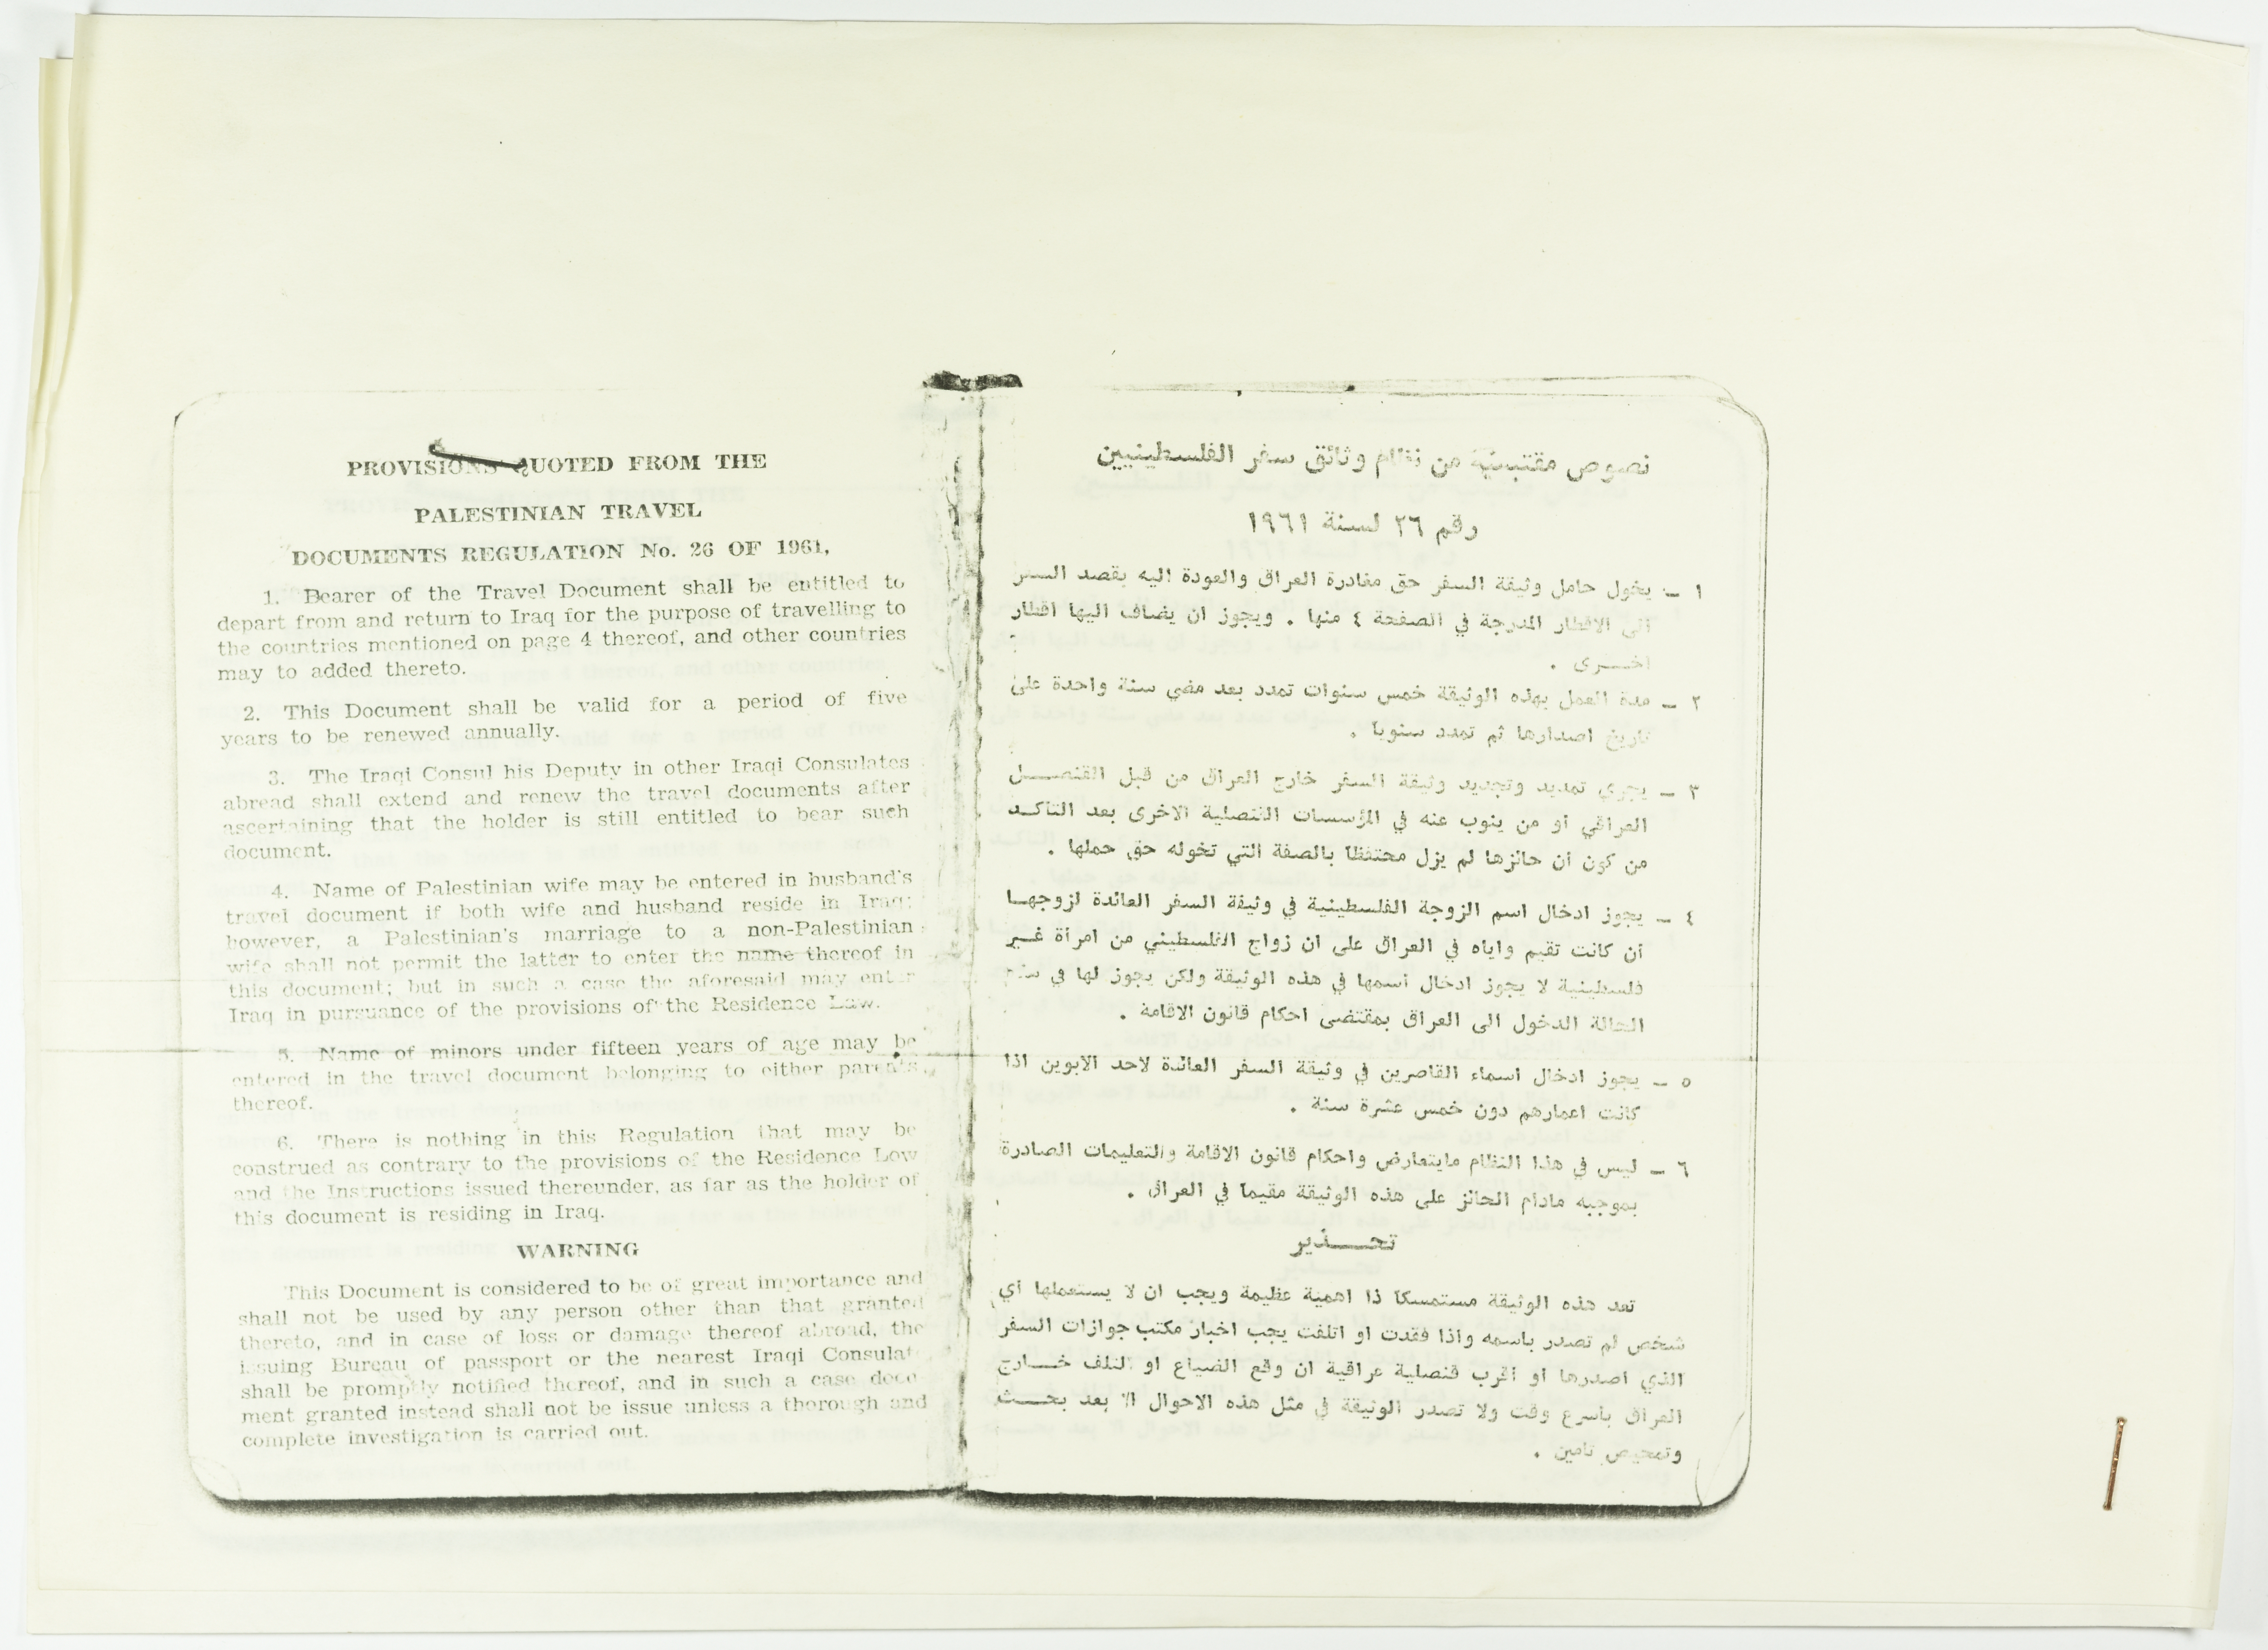 PROVISIONS QUOTED FROM THE
PALESTINIAN TRAVEL
DOCUMENTS REGULATION No. 26 OF 1961,
1. Bearer of the Travel Document shall be entitled to
depart from and return to Iraq for the purpose of travelling to
the countries mentioned on page 4 thereof, and other countries
may to added thereto.
2. This Document shall be valid for a period of five
years to be renewed annually.
3. The Iraqi Consul his Deputy in other Iraqi Consulates
abroad shall extend and renew the travel documents after
ascertaining that the holder is still entitled to bear such
document.
4. Name of Palestinian wife may be entered in husband's
travel document if both wife and husband reside in Iraq;
however, a Palestinian's marriage to a non-Palestinian
wife shall not permit the latter to enter the name thereof in
this document; but in such a case the aforesaid may enter
Iraq in pursuance of the provisions of the Residence Law.
5. Name of minors under fifteen years of age may be
entered in the travel document belonging to either parents
thereof.
6. There is nothing in this Regulation that may be
construed as contrary to the provisions of the Residence Low
and the Instructions issued thereunder, as far as the holder of
this document is residing in Iraq.
WARNING
This Document is considered to be of great importance and
shall not be used by any person other than that granted
thereto, and in case of loss or damage thereof abroad, the
issuing Bureau of passport or the nearest Iraqi Consulate
shall be promptly notified thereof, and in such a case docu
ment granted instead shall not be issue unless a thorough and
complete investigation is carried out.
نصوص مقتبسة من نظام وثائق سفر الفلسطينيين
رقم ٢٦ لسنة ١٩٦١
١ – يخول حامل وثيقة السفر حق مغادرة العراق والعودة اليه بقصد السفر
الى الاقطار المدرجة في الصفحة ٤ منها . ويجوز ان يضاف اليها اقطار
اخـــرى .
٢ – مدة العمل بهذه الوثيقة خمس سنوات تمدد بعد مضي سنة واحدة على
تاريخ اصدارها ثم تمدد سنويا .
٣ – يجري تمديد وتجديد وثيقة السفر خارج العراق من قبل القنصـــل
العراقي أو من ينوب عنه في المؤسسات القنصلية الاخرى بعد التاكـد
من كون ان حائزها لم يزل محتفظا بالصفة التي تخوله حق حملها .
٤ – يجوز ادخال اسم الزوجة الفلسطينية في وثيقة السفر العائدة لزوجهـا
ان كانت تقيم واياه في العراق على ان زواج الفلسطيني من امرأة غـير
فلسطينية لا يجوز ادخال اسمها في هذه الوثيقة ولكن يجوز لها في
الحالة الدخول الى العراق بمقتضى احكام قانون الاقامة .
٥ – يجوز ادخال اسماء القاصرين في وثيقة السفر العائدة لاحد الابوين اذا
كانت اعمارهم دون خمس عشرة سنة .
٦ – ليس في هذا النظام مايتعارض واحكام قانون الاقامة والتعليمات الصادرة
بموجبه مادام الحائز على هذه الوثيقة مقيما في العراق .
تحـــذير
تعد هذه الوثيقة مستمسكا ذا اهمية عظيمة ويجب ان لا يستعملها أي
شخص لم تصدر باسمه واذا فقدت او اتلفت يجب اخبار مكتب جوازات السفر
الذي اصدرها او اقرب قنصلية عراقية ان وقع الضياع او التلف خـــارج
العراق باسرع وقت ولا تصدر الوثيقة في مثل هذه الاحوال الا بعد بحـــث
وتمحيص تامين .